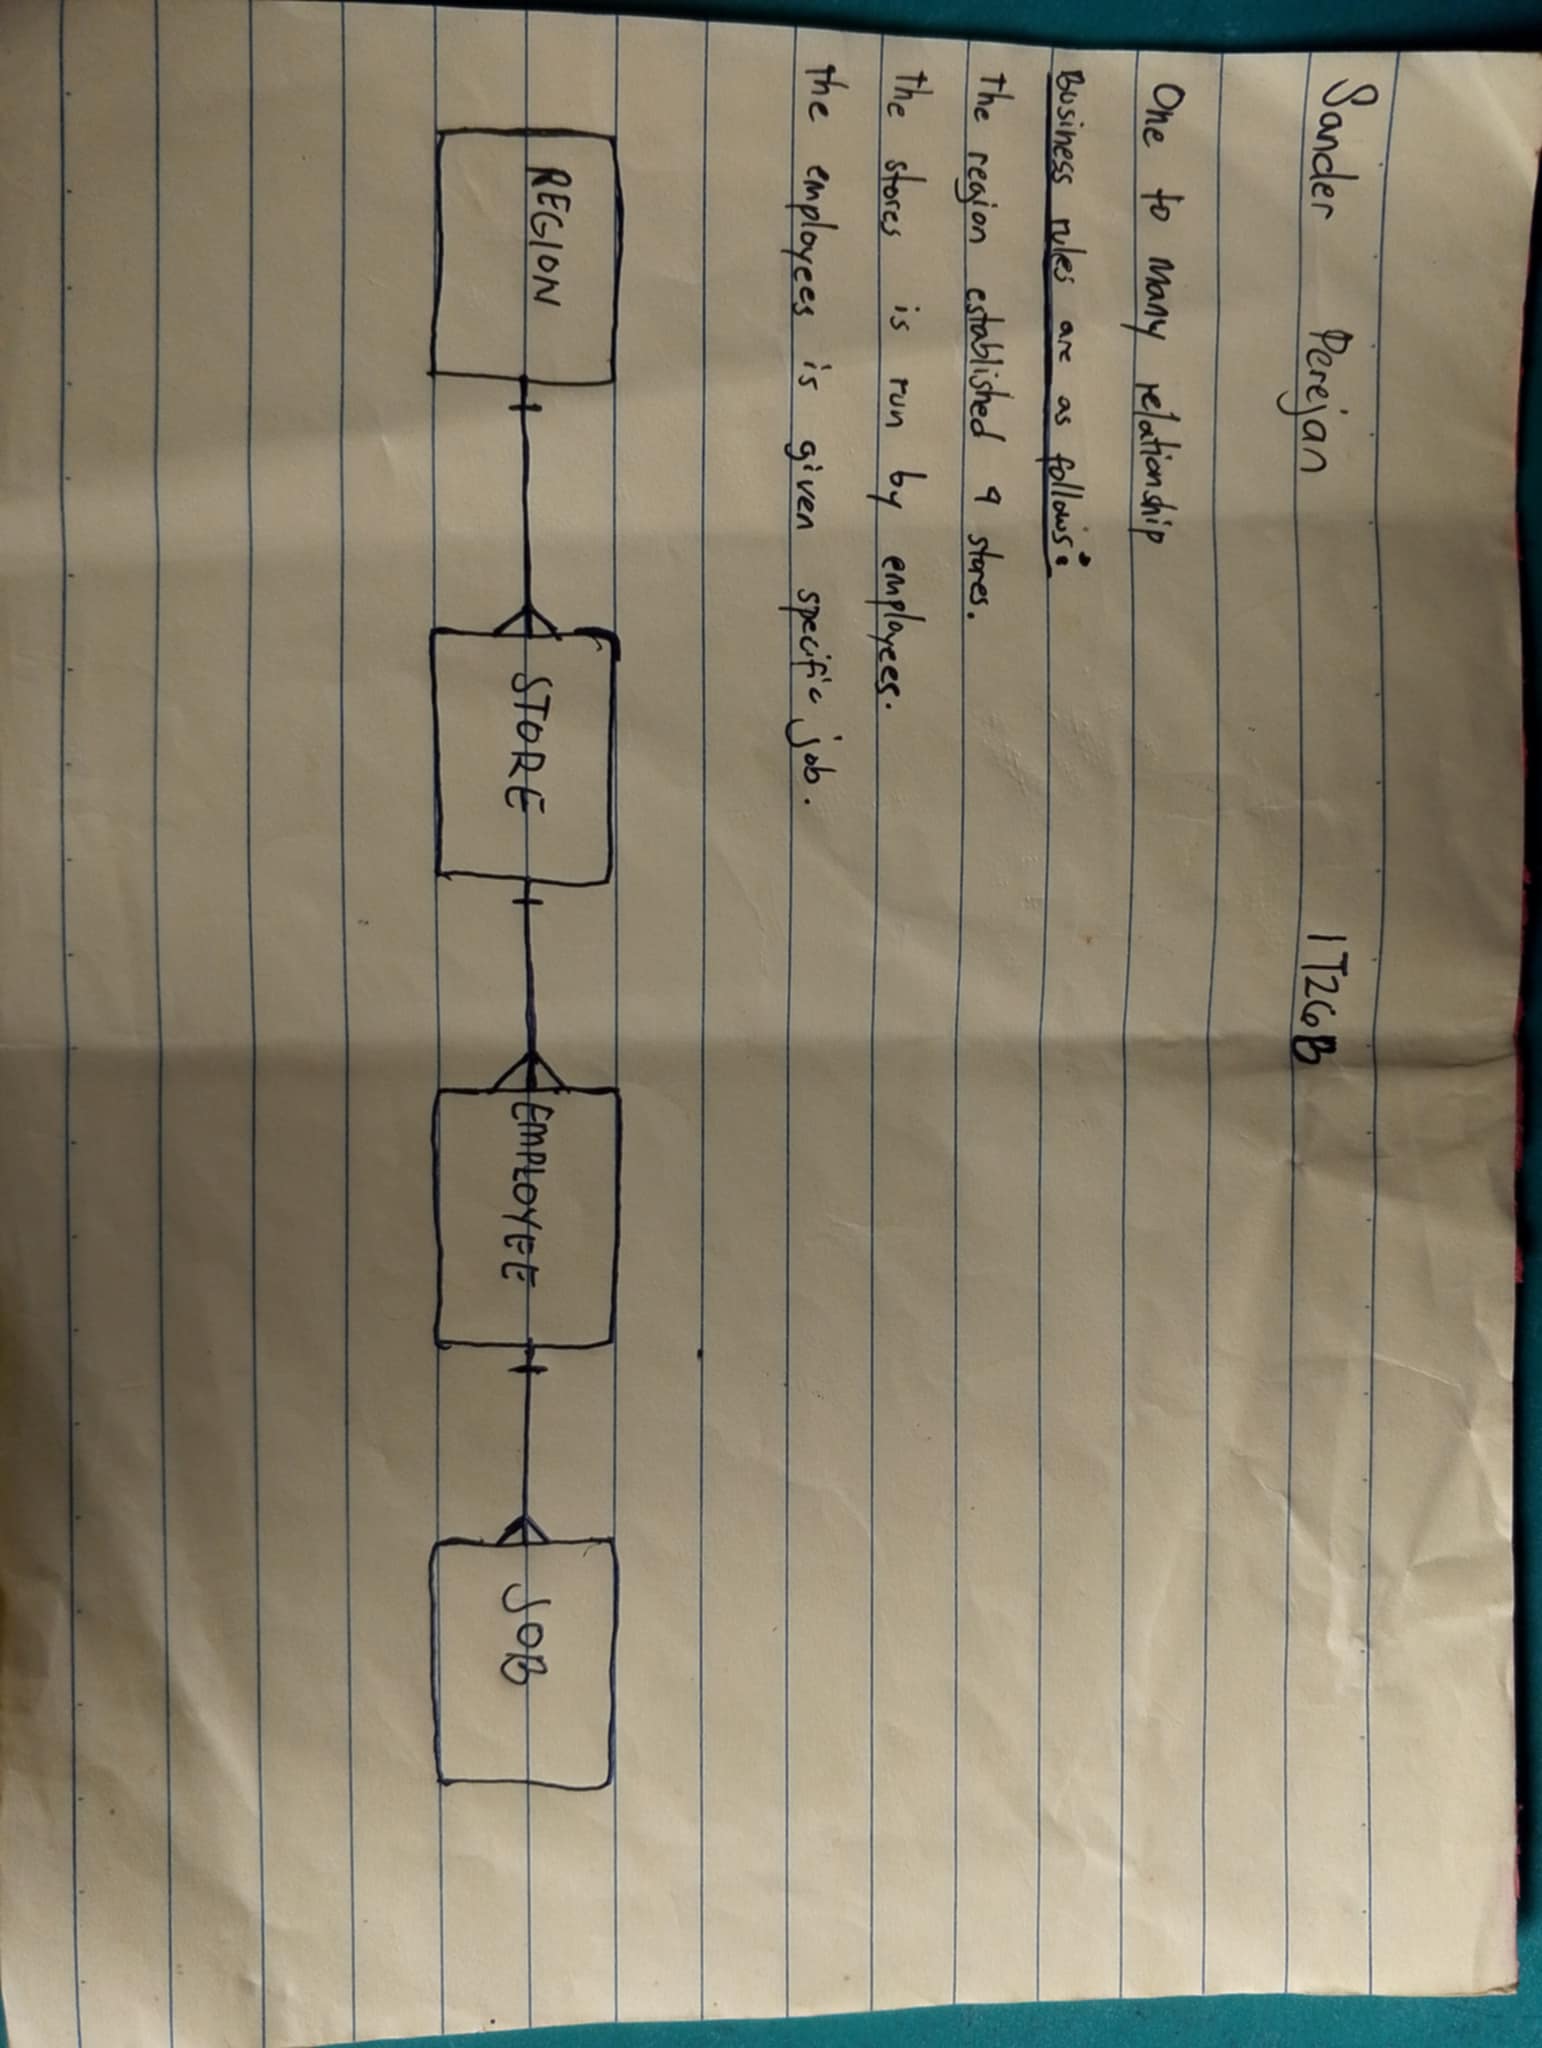 Sander Perejan IT2GB
One to Many relationship
Business rules are as follows:
The region established 4 stores.
The stores is run by employees.
The employees is given specific job.
REGION STORE EMPLOYEE JOB